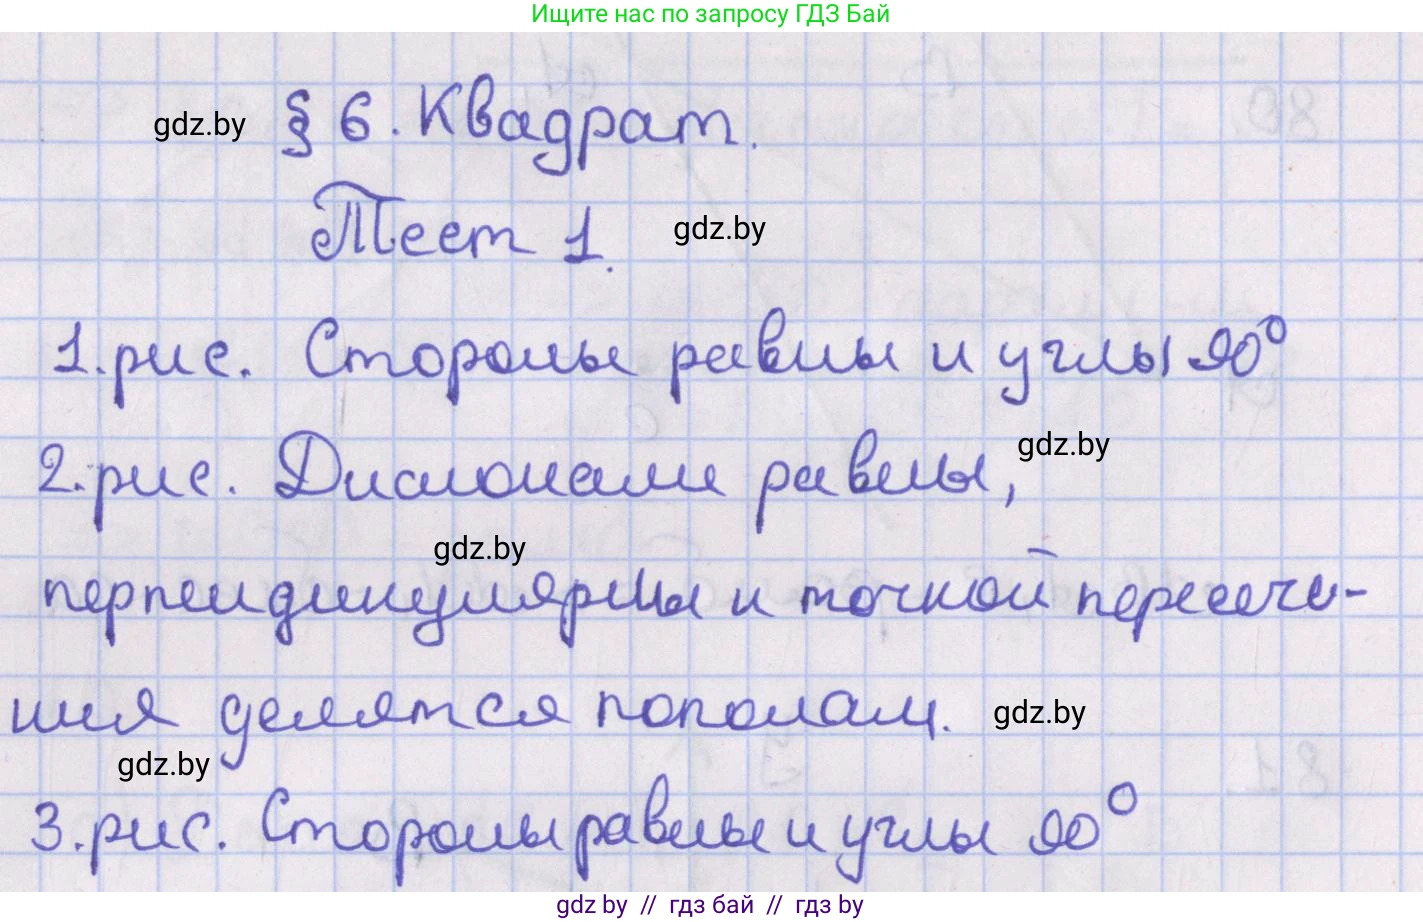 Ищите нас по запросу ГДЗ Бай
gdz.by § 6. Квадрат.
Тест 1. gdz.by
1. рис. Стороны равны и углы 90°
2. рис. Диагонали равны, gdz.by
gdz.by
перпендикулярны и точкой пересече-
ния делятся пополам. gdz.by
gdz.by
3. рис. Стороны равны и углы 90°
gdz.by // гдз бай // гдз by